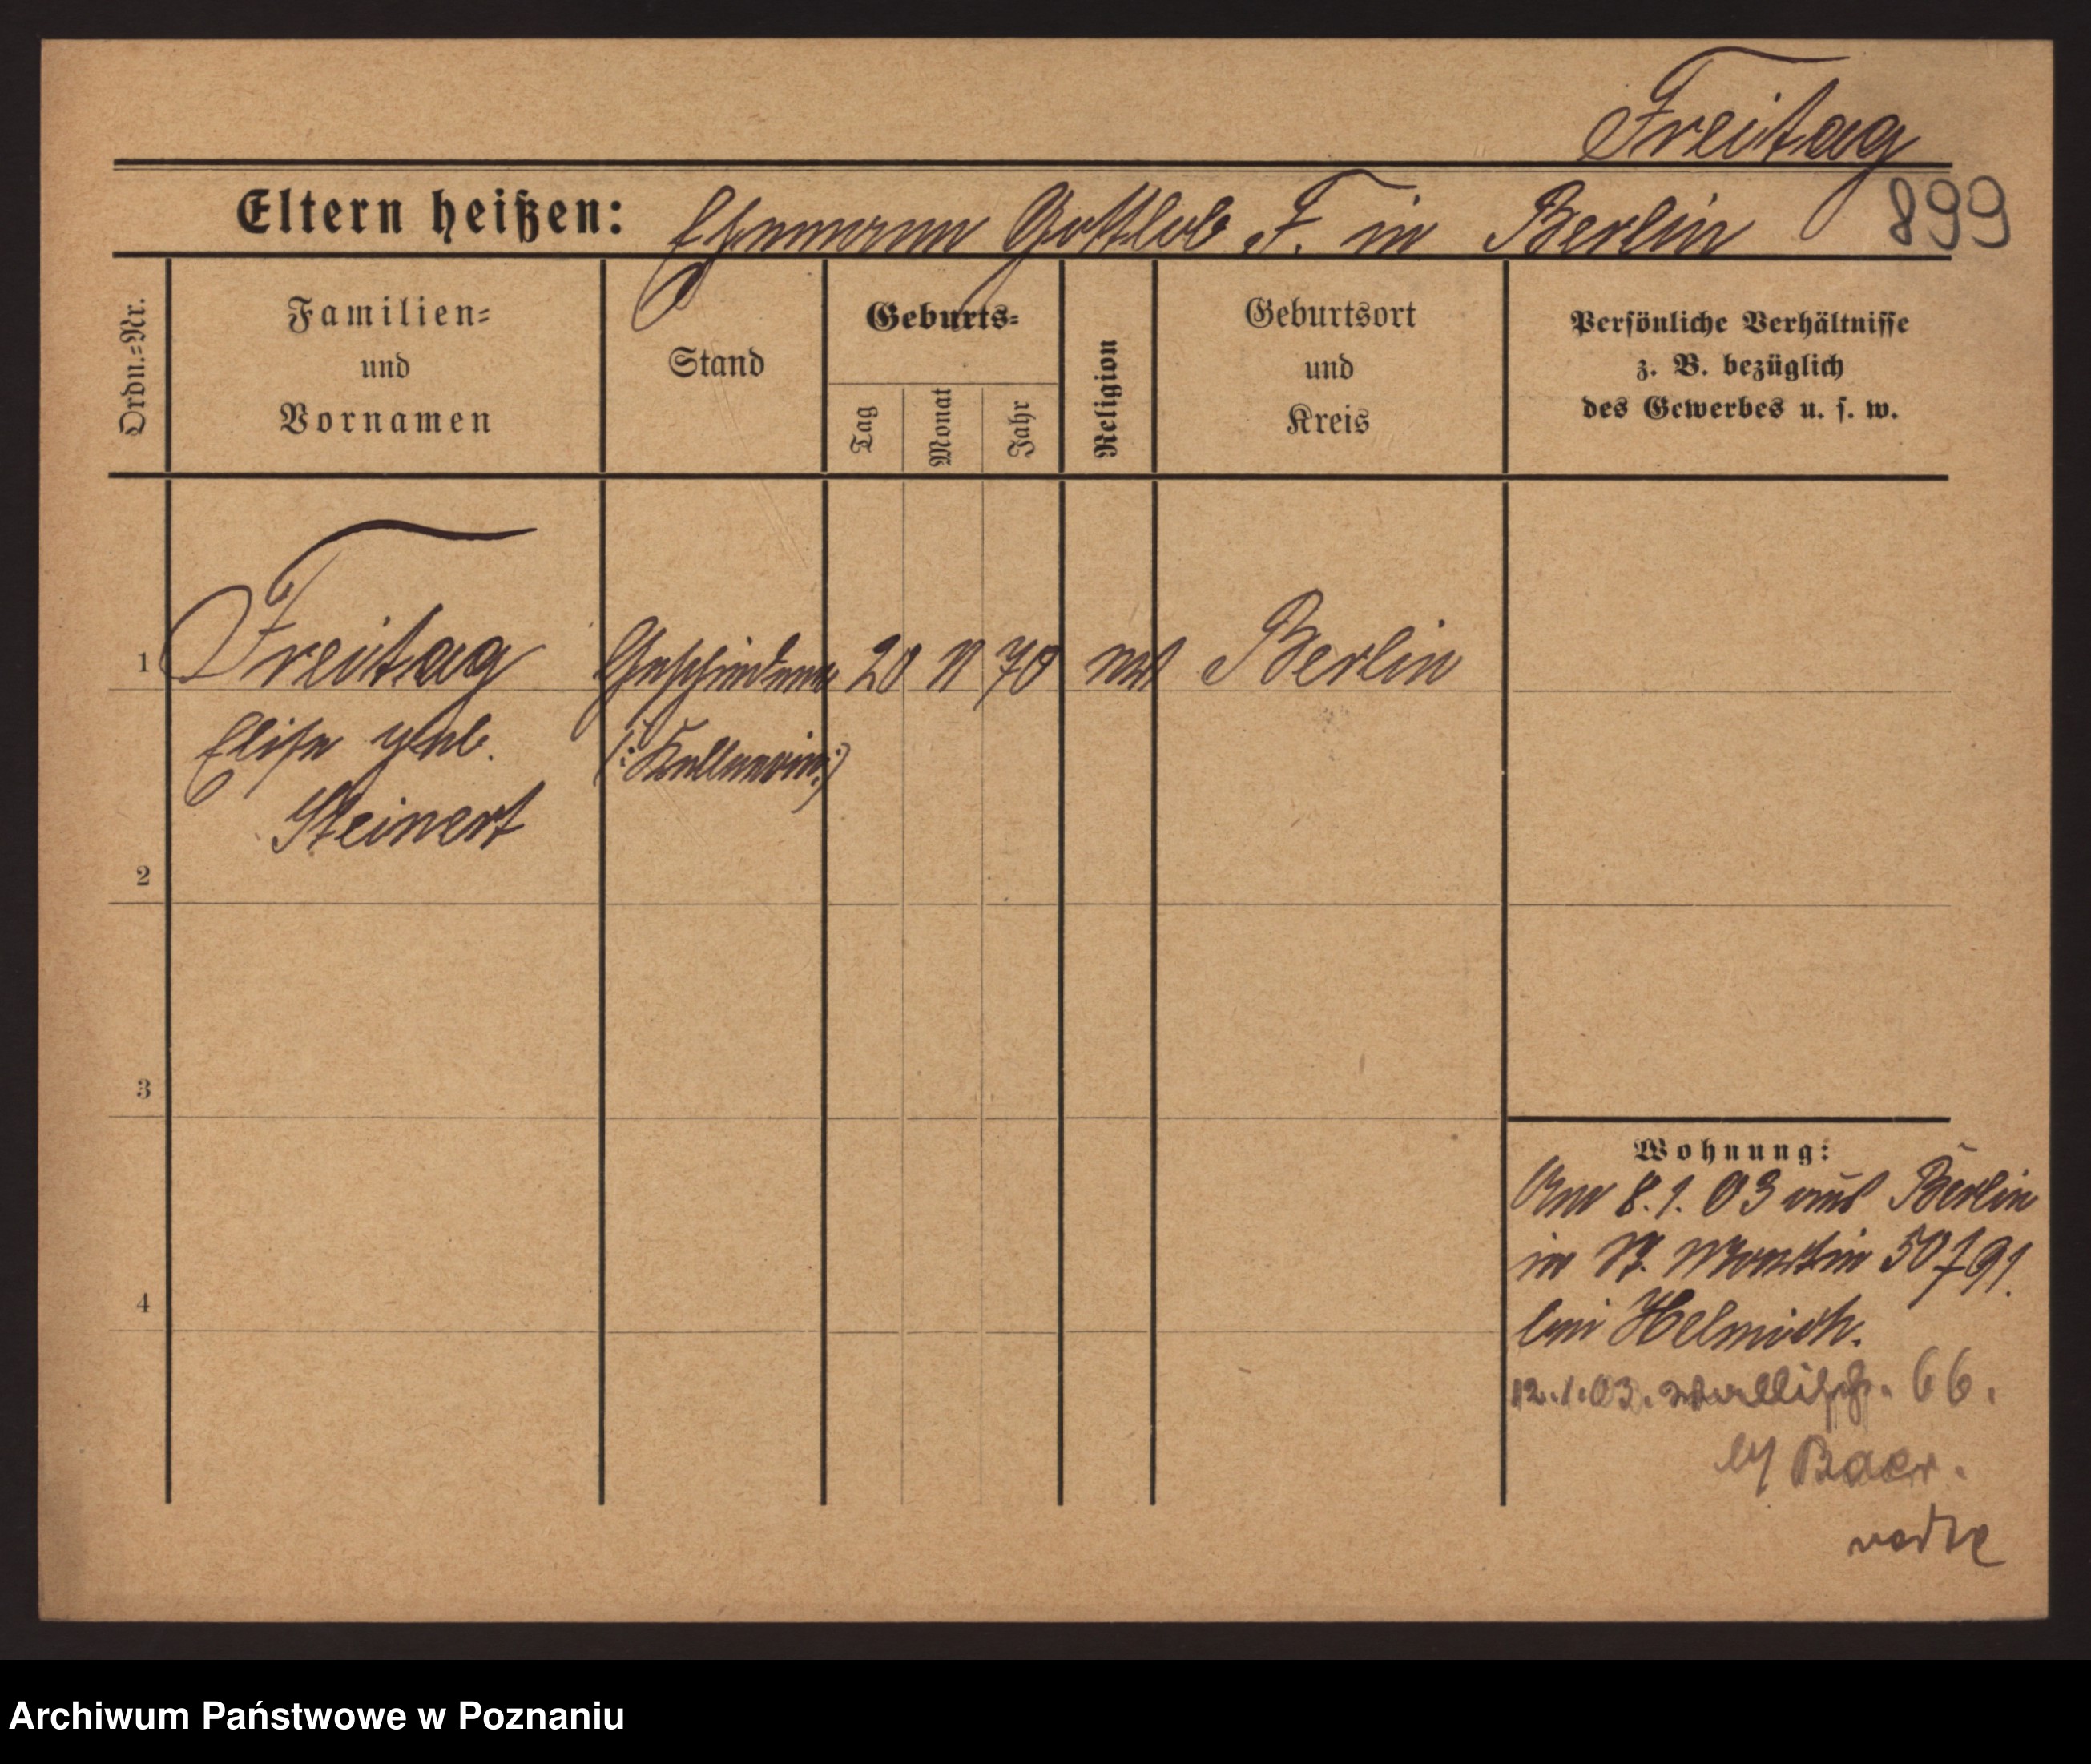 Freitag
Eltern heißen: Ehemann Gottlob F. in Berlin 899
Ordn.=Nr.
Familien=
und
Vornamen
Stand
Geburts=
Tag
Monat
Jahr
Religion
Geburtsort
und
Kreis
Persönliche Verhältnisse
z. B. bezüglich
des Gewerbes u. s. w.
1 Freitag Geschiedene 20 11 70 Berlin
Elise geb. (: Kellnerin :)
Steinert
2
3
4
Wohnung:
Am 8.1.03 aus Berlin
in St. Martin 50
bei Helmich.
12.1.03. Wallisch. 66.
b/ Baer.